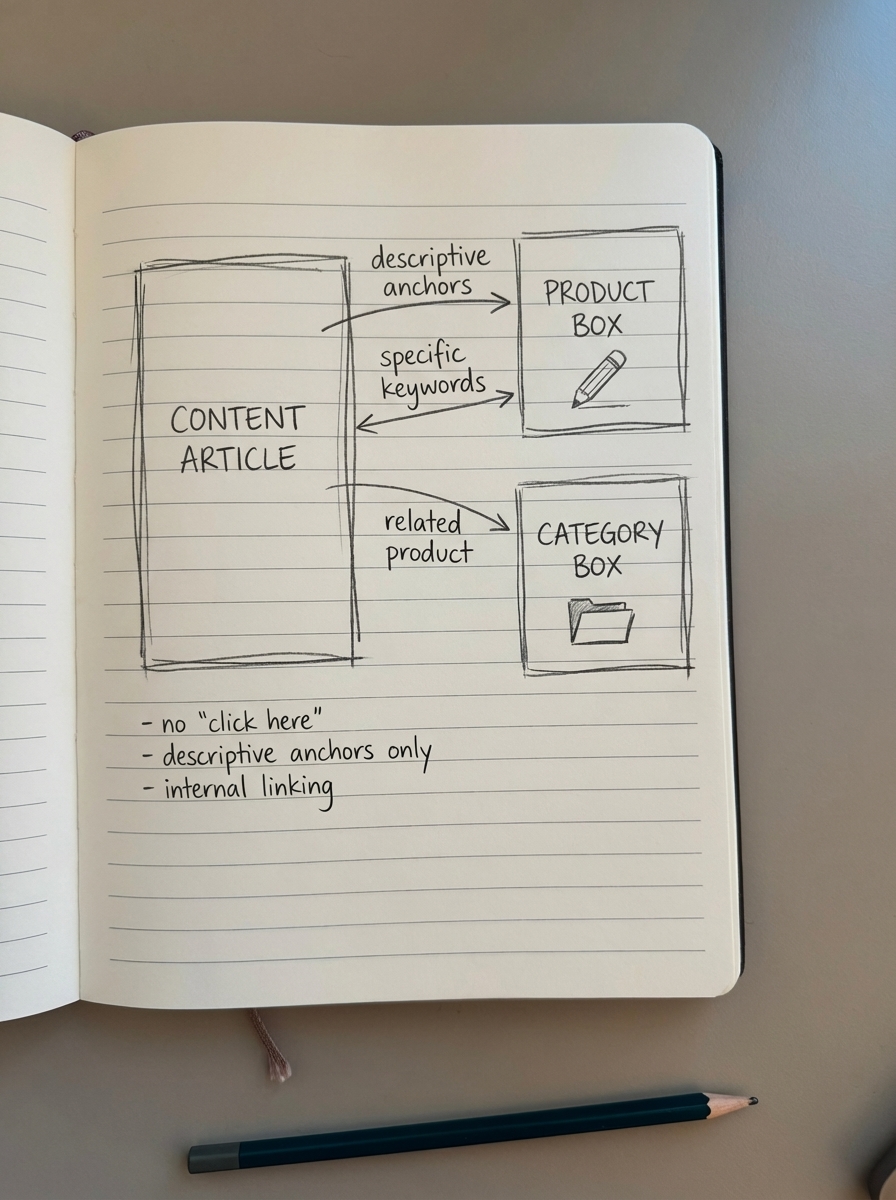 descriptive
anchors
PRODUCT
BOX
specific
keywords
CONTENT
ARTICLE
related
product
CATEGORY
BOX
- no "click here"
- descriptive anchors only
- internal linking